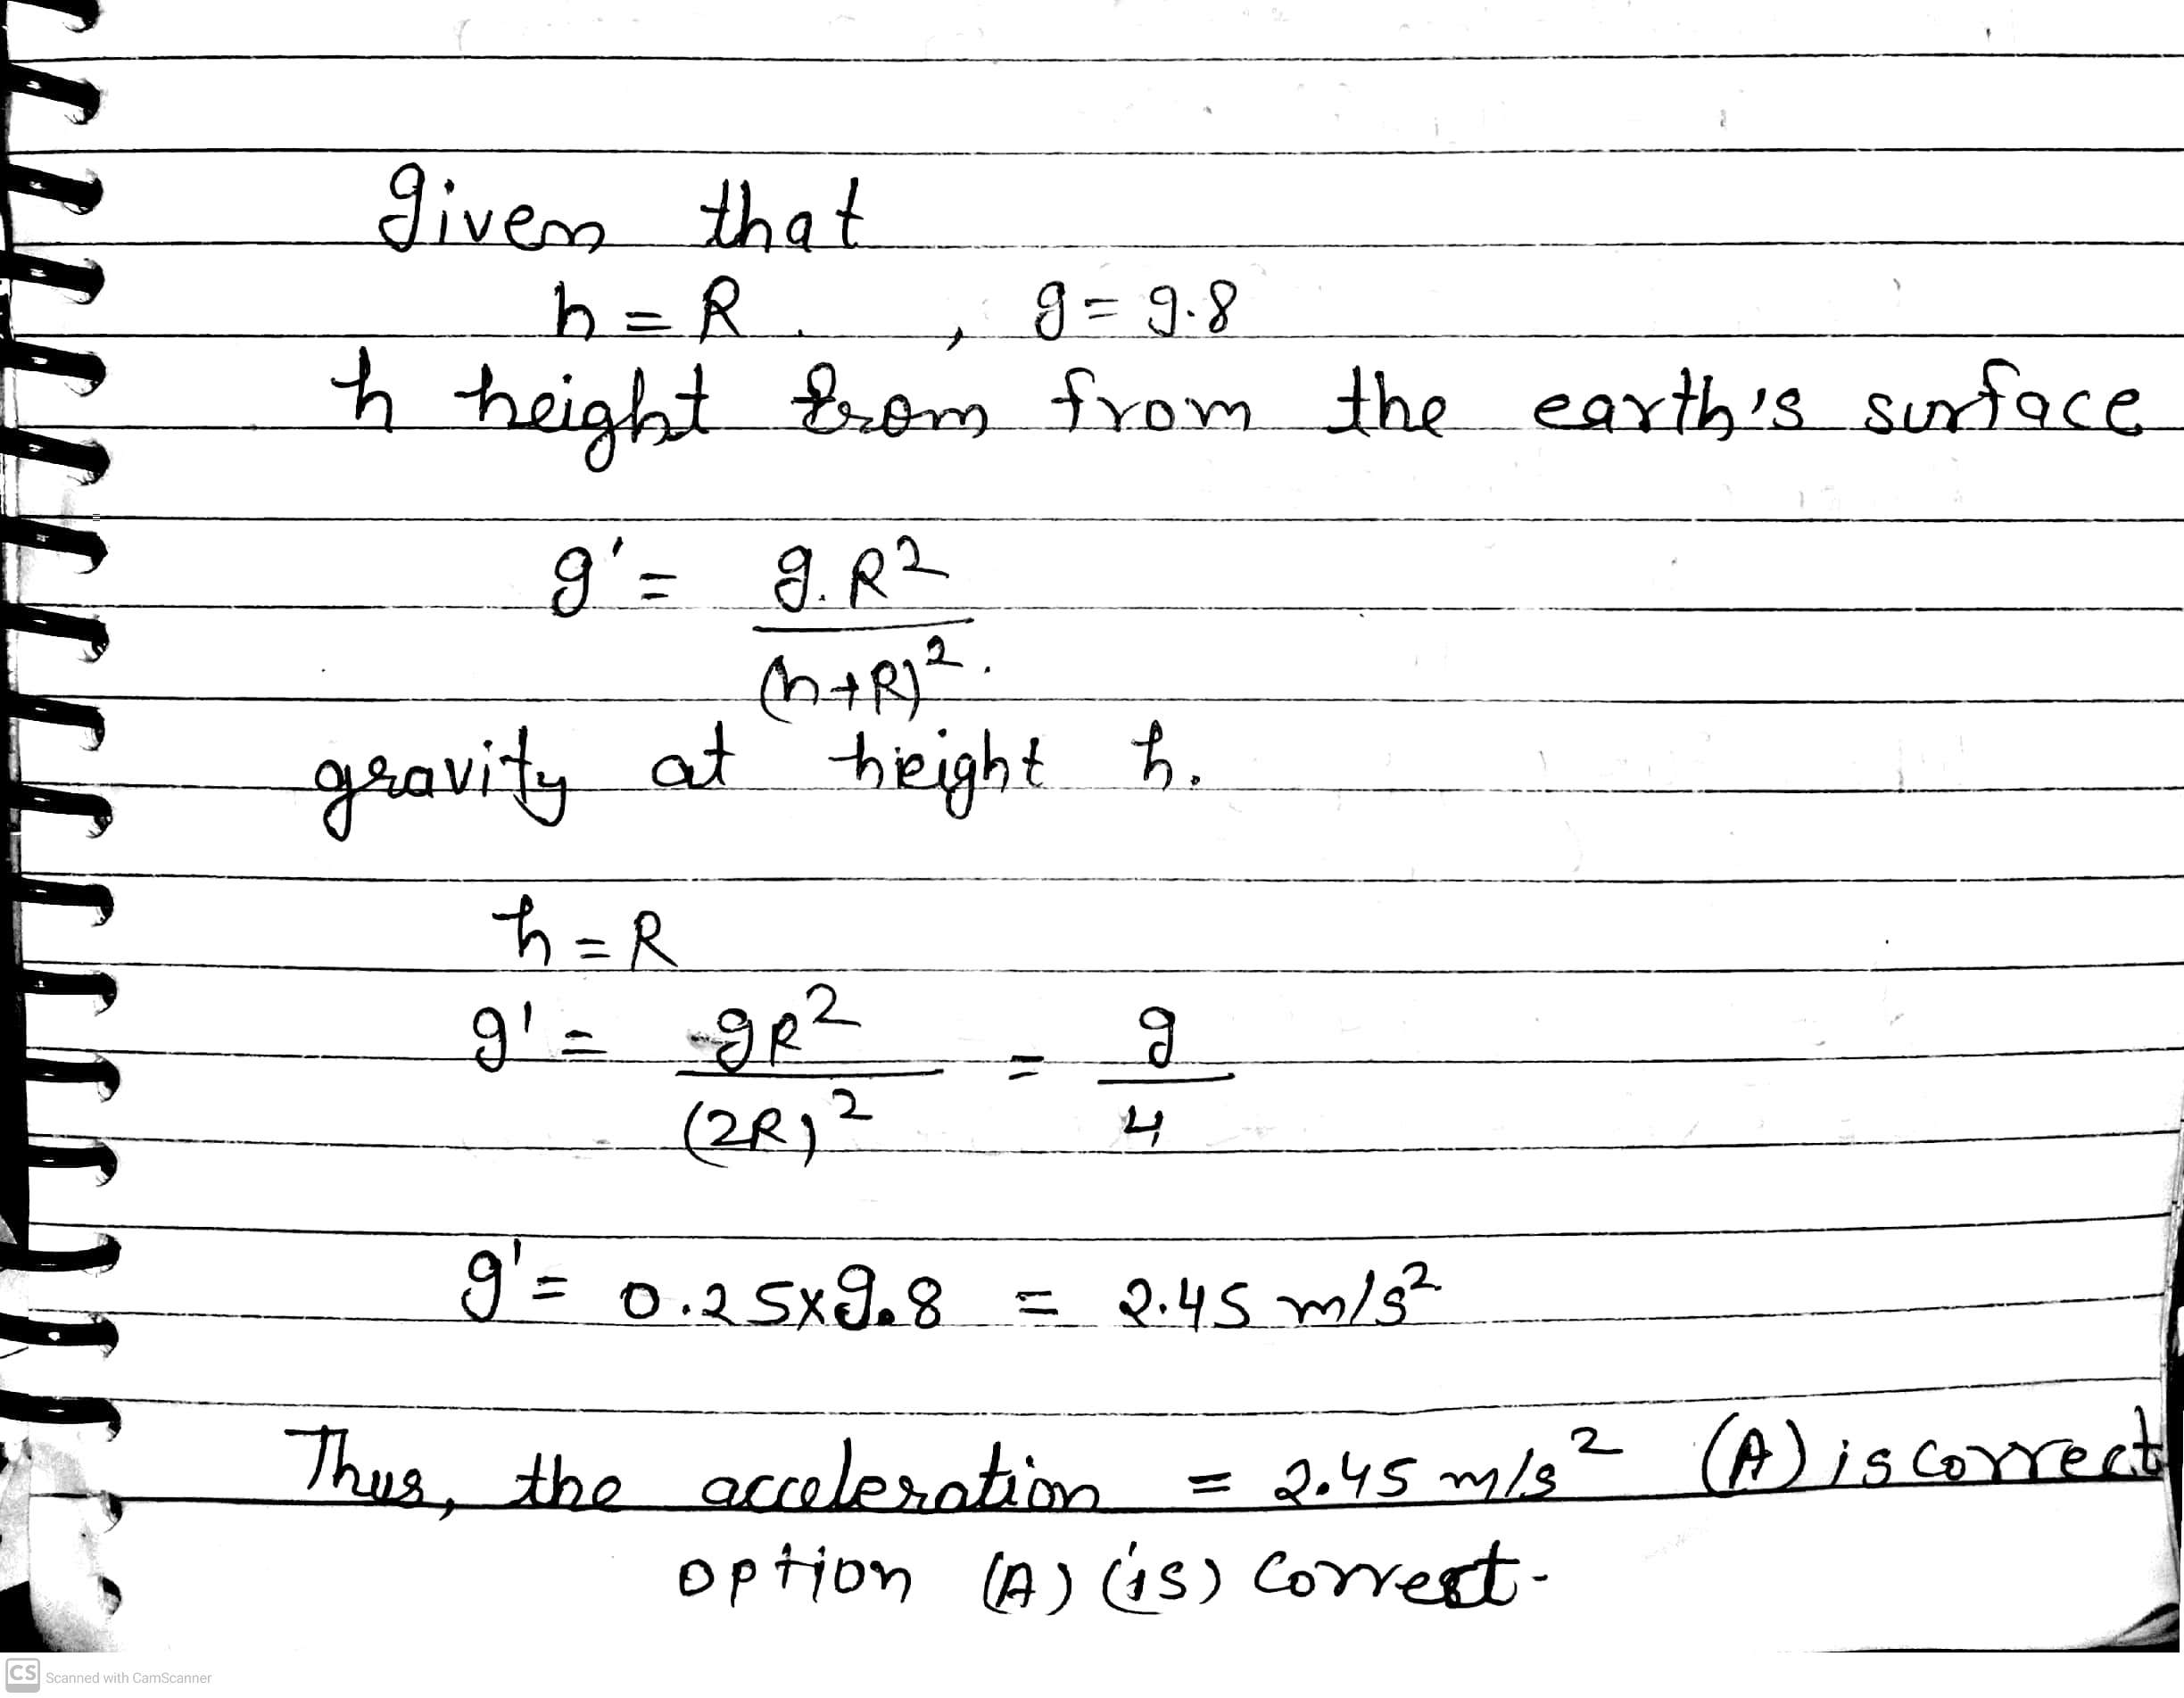 given that
h = R , g = 9.8
h height from from the earth's surface
g' = g.R²
(h+R)².
gravity at height h.
h = R
g' = gR² = g
(2R)² 4
g' = 0.25x9.8 = 2.45 m/s²
Thus, the acceleration = 2.45 m/s² (A) is correct
option (A) (is) correct.
CS Scanned with CamScanner